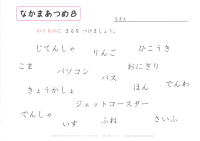 なかまあつめ8
なまえ
のりものに まるを つけましょう。
じてんしゃ りんご ひこうき
こま パソコン おにぎり
バス
きょうかしょ ほん でんわ
ジェットコースター
でんしゃ いす ふね さいふ